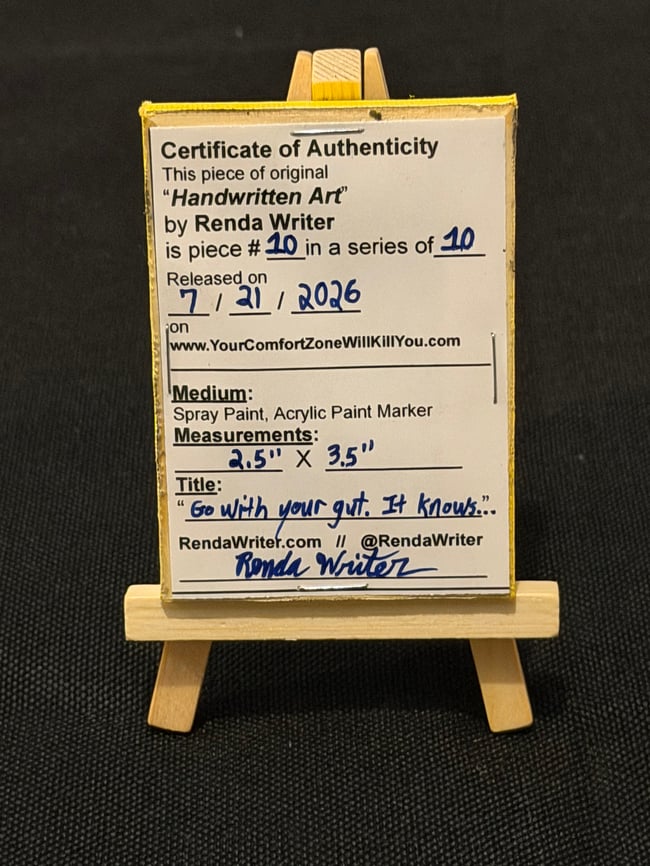 Certificate of Authenticity
This piece of original
“Handwritten Art”
by Renda Writer
is piece # 10 in a series of 10
Released on
7 / 21 / 2026
on
www.YourComfortZoneWillKillYou.com
Medium:
Spray Paint, Acrylic Paint Marker
Measurements:
2.5" X 3.5"
Title:
“Go with your gut. It knows...”
RendaWriter.com // @RendaWriter
Renda Writer